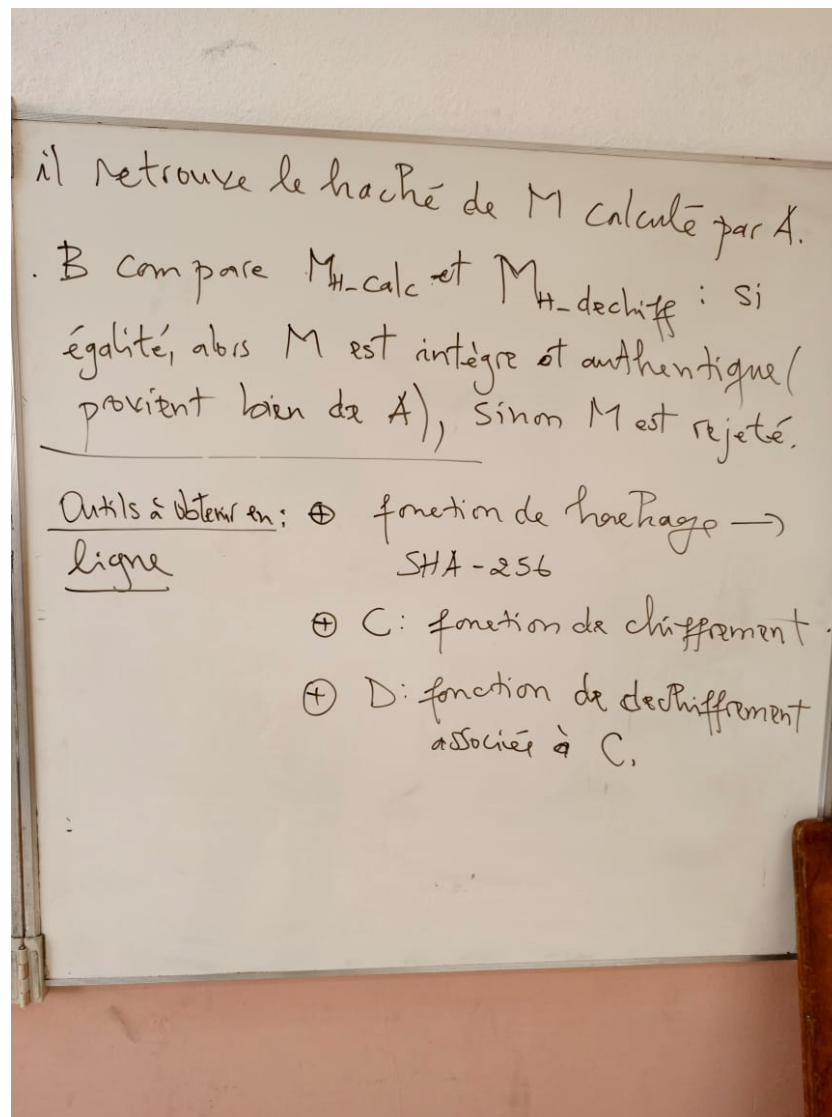 il retrouve le haché de M calculé par A.
. B compare M_H-calc et M_H-dechiff : si
égalité, alors M est intègre et authentique (
provient bien de A), sinon M est rejeté.
Outils à obtenir en : ⊕ fonction de hachage →
ligne SHA-256
⊕ C: fonction de chiffrement.
⊕ D: fonction de dechiffrement
associée à C.